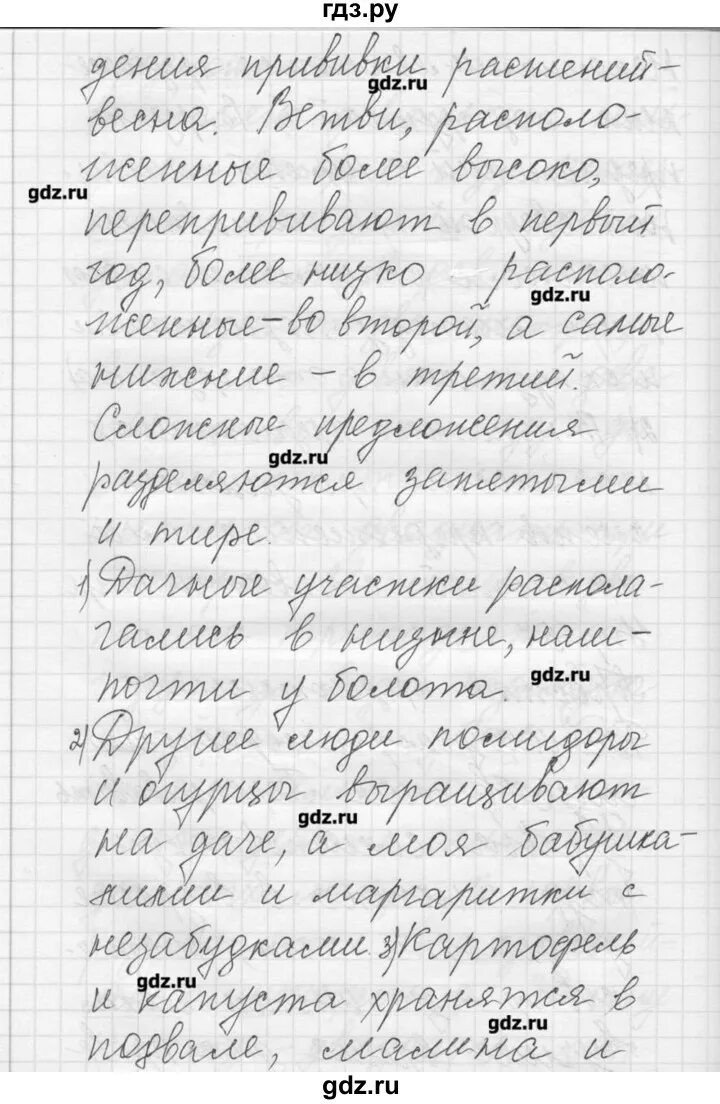 гдз.ру
дения прививки растений-
gdz.ru
весна. Ветви, располо-
женные более высоко,
gdz.ru
перепрививают в первый
год, более низко располо-
gdz.ru
женные-во второй, а самые
нижние - в третий.
Сложные предложения
gdz.ru
разделяются запятыми
и тире.
1) Дачные участки распола-
гались в низине, наш-
gdz.ru
почти у болота.
2) Другие люди помидоры
и огурцы выращивают
gdz.ru
на даче, а моя бабушка-
лилии и маргаритки с
незабудками. 3) Картофель
gdz.ru
и капуста хранятся в
gdz.ru
подвале, малина и
gdz.ru